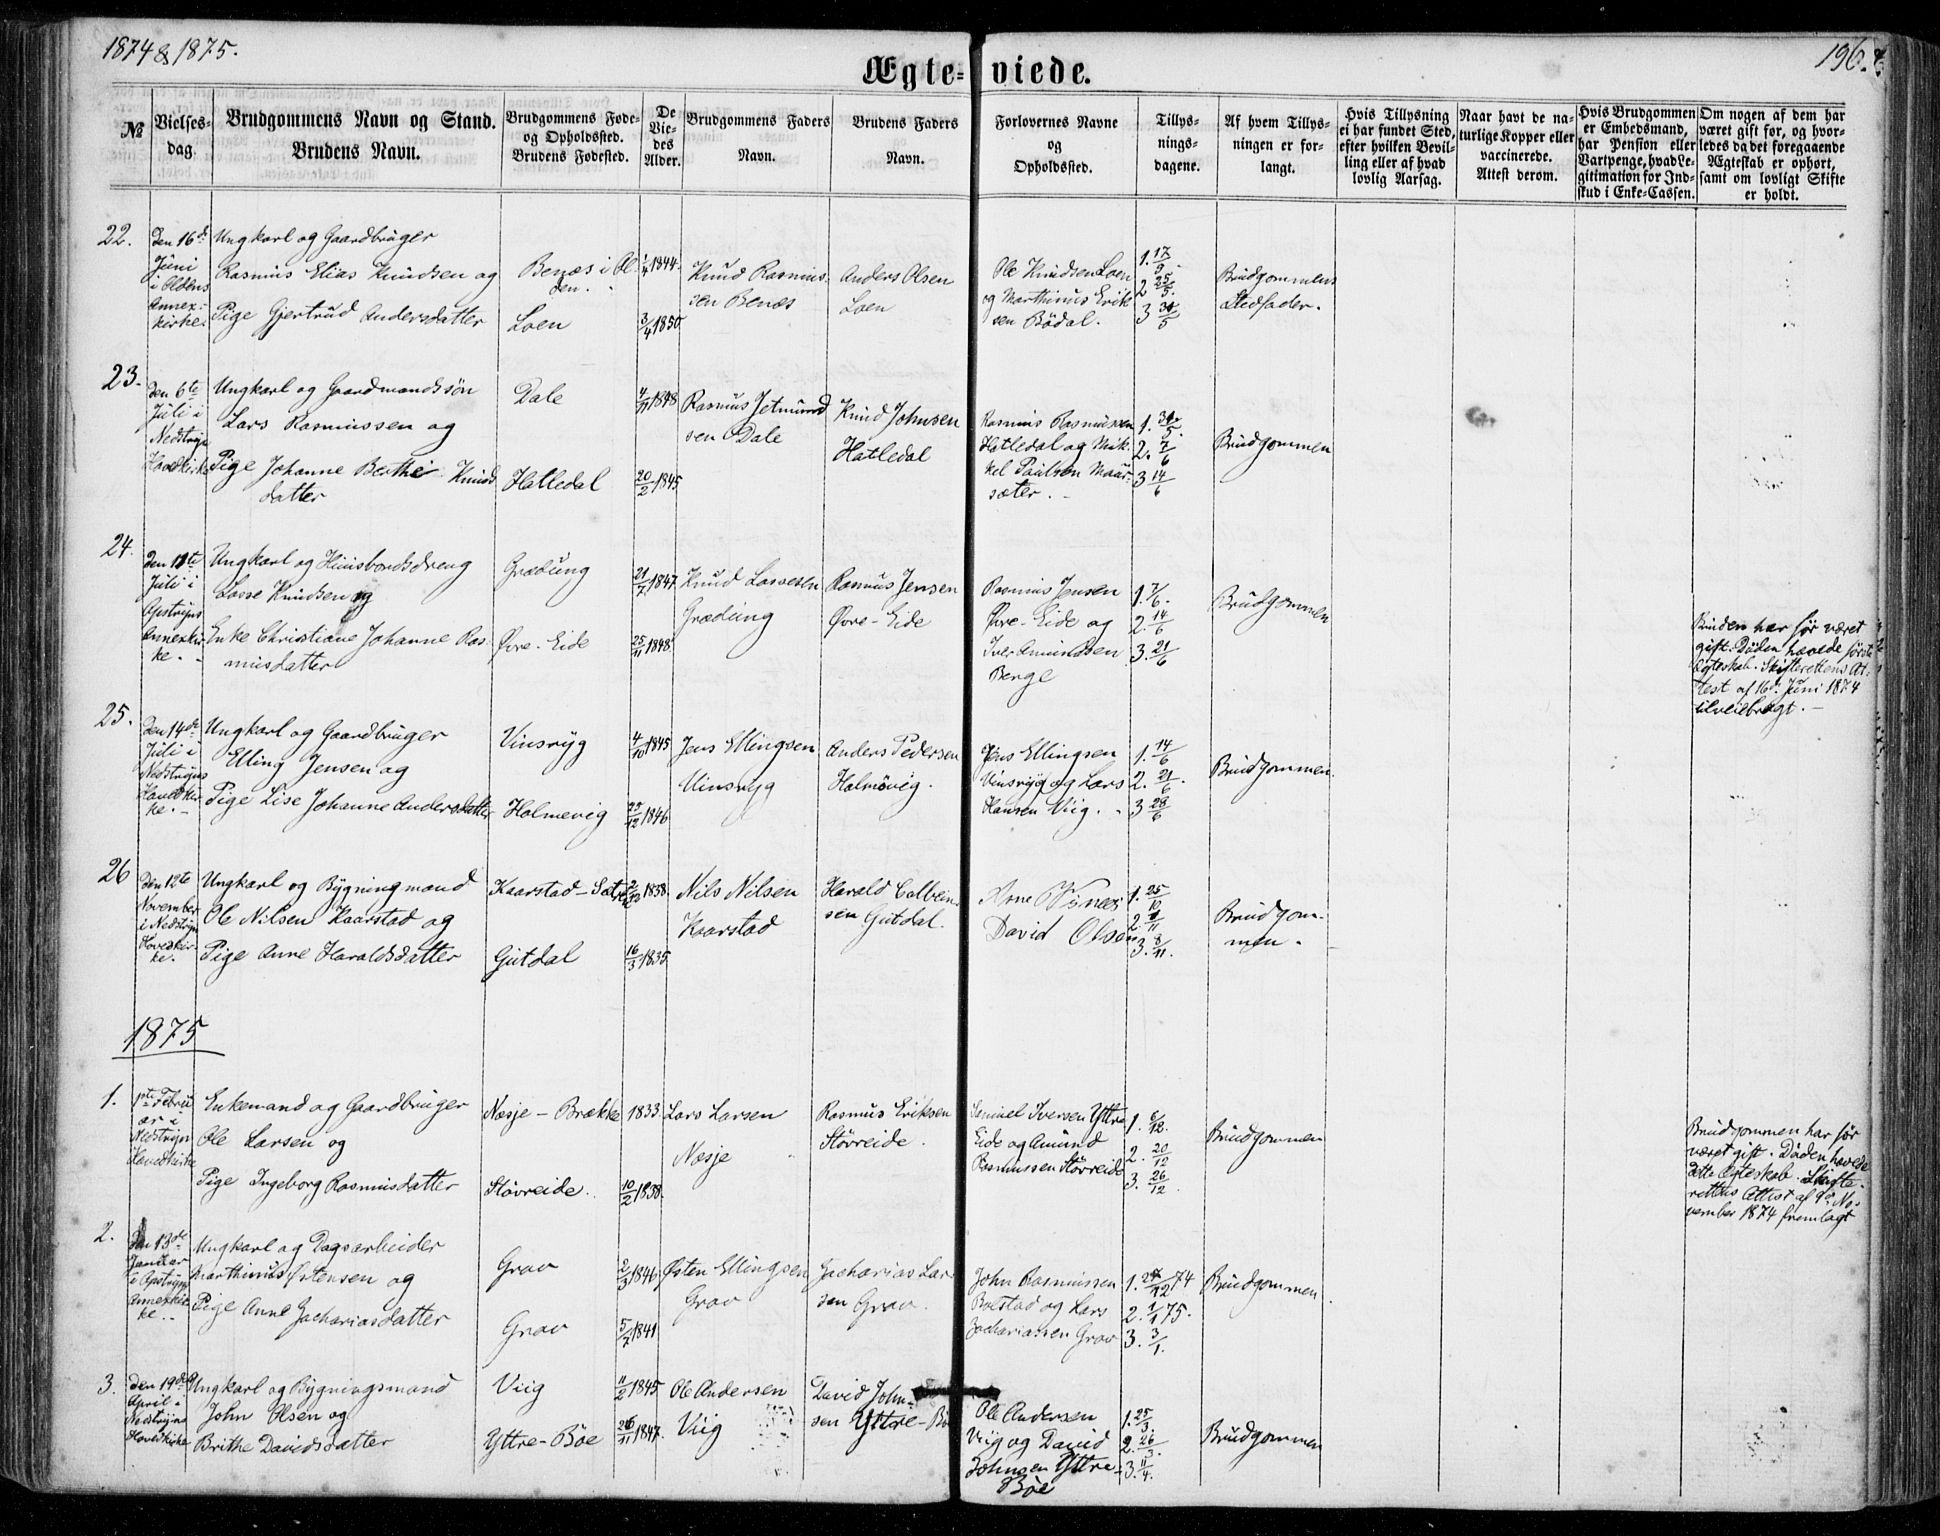 1874 & 1875.
196.
Ægteviede.
№
Vielses-
dag.
Brudgommens Navn og Stand.
Brudens Navn.
Brudgommens Føde-
og Opholdssted.
Brudens Fødested.
De
Vie-
des
Alder.
Brudgommens Faders
Navn.
Brudens Faders
Navn.
Forlovernes Navne
og
Opholdssted.
Tillys-
nings-
dagene.
Af hvem Tillys-
ningen er for-
langt.
Hvis Tillysning
ei har fundet Sted,
efter hvilken Bevil-
ling eller af hvad
lovlig Aarsag.
Naar havt de na-
turlige Kopper eller
vaccinerede.
Attest derom.
Hvis Brudgommen
er Embedsmand,
har Pension eller
Vartpenge, hvad Le-
gitimation for Ind-
skud i Enke-Cassen.
Om nogen af dem har
været gift før, og hvor-
ledes da det foregaaende
Ægteskab er ophørt,
samt om lovligt Skifte
er holdt.
22.
Den 16de
Juni
i Oldens
Annex-
kirke.
Ungkarl og Gaardbruger
Rasmus Elias Knudsen og
Pige Gjertrud Andersdatter
Benæs i Ol-
den.
Loen
1844.
3/4 1850.
Knud Rasmus-
sen Benæs
Anders Olsen
Loen
Ole Knudsen Loen
og Marthinus Erik-
sen Bødal.
1. 17/5.
2 25/5.
3 31/5
Brudgommens
Stedfader.
23.
Den 6te
Juli i
Nedstryn
Hovedkirke
Ungkarl og Gaardmandssøn
Lars Rasmussen og
Pige Johanne Berthe Knuds
datter
Dale
Hatledal
4/11 1848
20/2 1845
Rasmus Jetmund
sen Dale
Knud Johnsen
Hatledal
Rasmus Rasmussen
Hatledal og Mik-
kel Paulsen Maur-
sæter.
1. 31/5.
2. 7/6
3 14/6
Brudgommen
24.
Den 11te
Juli i
Opstryns
Annexkir-
ke.
Ungkarl og Huusbondsdreng
Lasse Knudsen og
Enke Christiane Johanne Ras-
musdatter
Grædung
Øvre-Eide
21/7 1847
25/11 1848.
Knud Lassesen
Grædung
Rasmus Jensen
Øvre-Eide
Rasmus Jensen
Øvre-Eide og
Iver Amundsen
Berge
1. 7/6.
2. 14/6
3. 21/6
Brudgommen
Bruden har før været
gift. Døden hævede første
Ægteskab. Skifterettens At-
test af 16de Juni 1874
tilveiebragt.
25.
Den 14de
Juli i
Nedstryns
Hovedkir-
ke.
Ungkarl og Gaardbruger
Elling Jensen og
Pige Lise Johanne Andersdatter
Vinsryg
Holmevig
4/10 1845
25/12 1846
Jens Ellingsen
Vinsryg
Anders Pedersen
Holmøvig.
Jens Ellingsen
Vinsryg og Lars
Hansen Viig.
1. 14/6
2. 21/6.
3 28/6
Brudgommen.
26
Den 12te
November
i Nedstryn
Hovedkir-
ke.
Ungkarl og Bygningmand
Ole Nilsen Kaarstad og
Pige Anne Haraldsdatter
Kaarstad-Sætre
Gutdal
1838.
16/3 1835
Nils Nilsen
Kaarstad
Harald Colbein-
sen Gutdal.
Arne
David Olsen
1. 25/10
2 1/11
3. 8/11.
Brudgom-
men.
1875
1.
1ste Febru
ar i
Nedstryn
Hovedkirke
Enkemand og Gaardbruger
Ole Larsen og
Pige Ingeborg Rasmusdatter
Nesje-Brække
Støvreide.
1833.
10/2 1838.
Lars Larsen
Nesje
Rasmus Eriksen
Støvreide.
Samuel Iversen Yttre
Eide og Amund
Rasmussen Støvreide
1. 6/12.
2. 20/12
3. 26/12.
Brudgommen
Brudgommen har før
været gift. Døden hævede
dette Ægteskab. Skifte-
rettens Attest af 9de No-
vember 1874 fremlagt
2.
Den 13de
Januar
i Opstryns
Annexkir-
ke.
Ungkarl og Dagsarbeider
Marthinus Østensen og
Pige Anne Zachariasdatter
Grov
Grov
2/3 1846
5/7 1841
Østen Ellingsen
Grov
Zacharias Lar-
sen Grov.
John Rasmussen
Bolstad og Lars
Zachariassen Grov
1. 27/12 74
2. 1/1 75.
3. 3/1.
Brudgommen.
3.
Den 19de
April i
Nedstryns
Hovedkirke
Ungkarl og Bygningsmand
John Olsen og
Brithe Davidsdatter
Viig
Yttre-Bøe
11/2 1845
26/11 1847.
Ole Andersen
Viig
David John-
sen Yttre-Bøe
Ole Andersen
Viig og David
Johnsen Yttre-
Bøe
1. 25/3.
2. 26/3.
3. 11/4.
Brudgommen